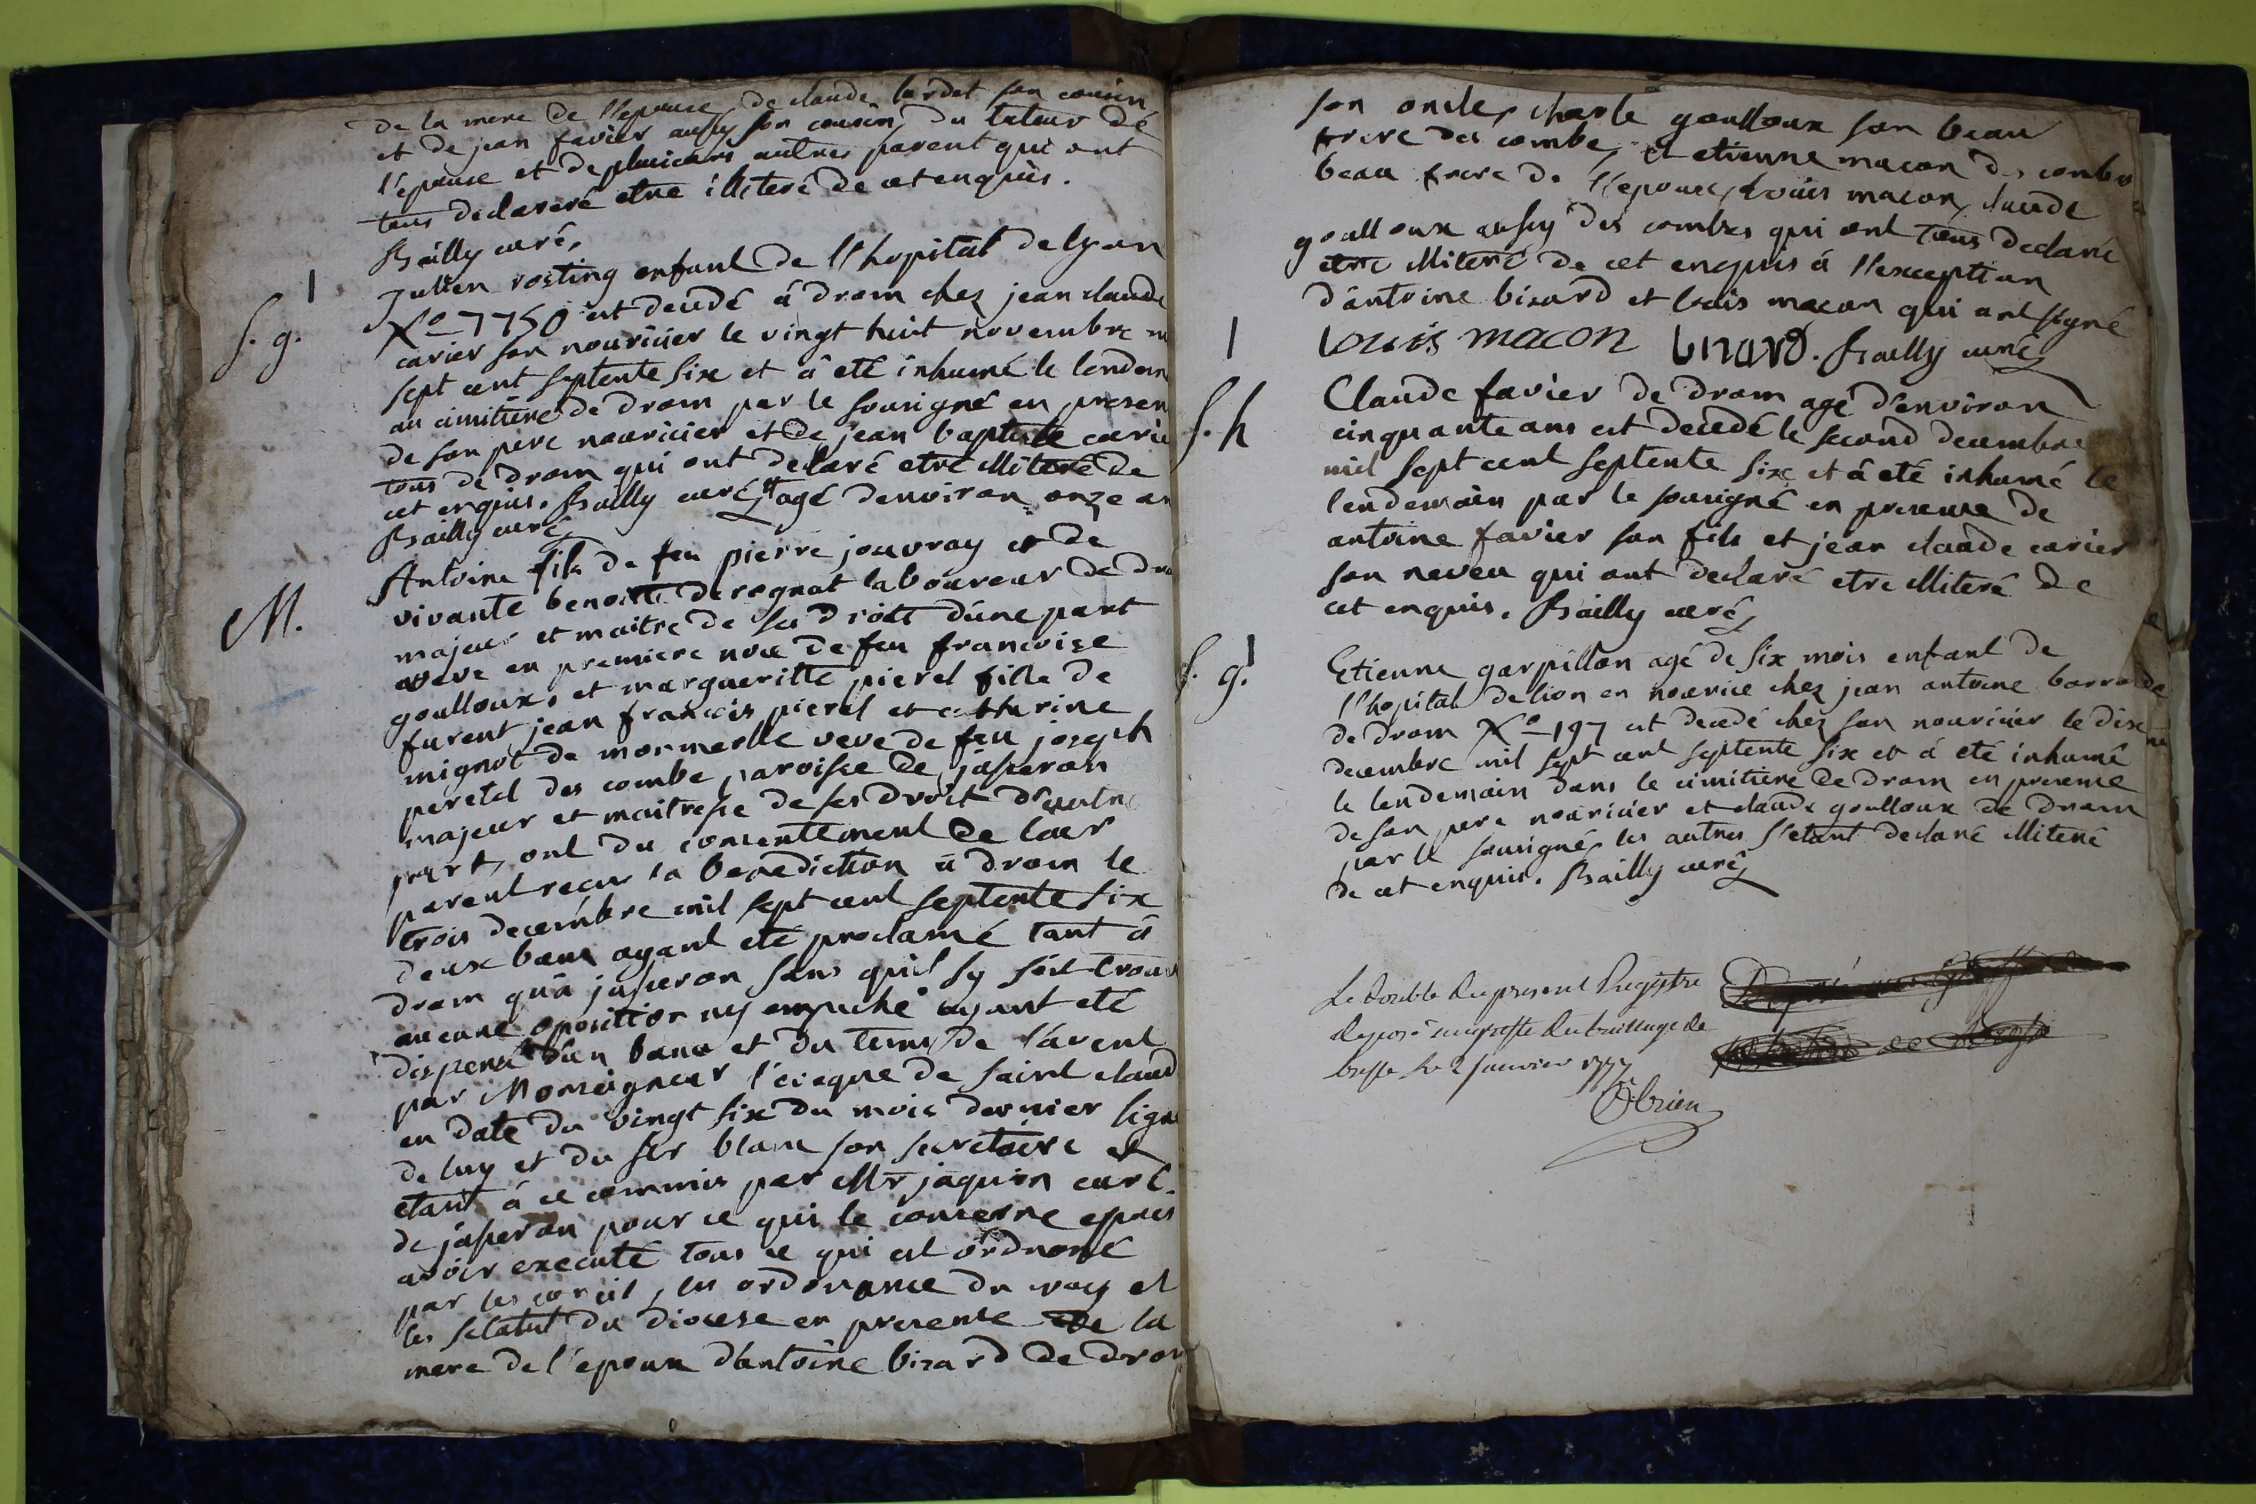 de la mere de l'epouse, de claude lardet son cousin
et de jean favier aussy son cousin, du tuteur de
l'epouse et de plusieurs autres parent qui ont
tous declareré etre illiteré de cet enquis.
Bailly curé,
Julien rosting enfant de l'hopital de lyon
S. g. No 7750 est decedé á drom chez jean claude
carier son nouricier le vingt huit novembre m
sept cent septente six et á eté inhumé le lendem
au cimitiere de drom par le sousigné en presen
de son pere nouricier et de jean baptiste carie
tous de drom qui ont declaré etre illiteré de
cet enquis. Bailly curé, agé denviron onze an
Bailly curé
Antoine fils de feu pierre jouvray et de
M. vivante benoitte derognat laboureur de dro
majeur et maitre de ses droit d'une part
veve en premiere noce de feu francoise
goulloux, et margueritte pierel fille de
furent jean francois pierel et catharine
mignot de mormerle veve de feu joseph
peretel des combe, paroisse de jasseron
majeur et maitresse de ses droit d'autre
part, ont du consentement de leur
parent recu la benediction á drom le
trois decembre mil sept cent septente six
deux banc ayant eté proclamé tant á
drom qu'á jasseron sans quil sy soit trouv
aucune oposition ny empeche ayant eté
dispensé d'un banc et du tems de l'avent
par Monseigneur l'eveque de saint claud
en date du vingt six du mois dernier signé
de luy et du sr blanc son secretaire et
etant á ce commis par Mr jaquin curé
de jasseron pour ce qui le concerne apres
avoir executé tous ce qui est ordonné
par les concil, les ordonance du roy et
les statut du diocese en presence de la
mere de l'epoux d'antoine bizard de drom
son oncle, charle goulloux son beau
frere des combe, et etienne macon des combe
beau frere de l'epouse, Louis macon, claude
goulloux aussy des combes qui ont tous declaré
etre illiteré de cet enquis á l'exception
d'antoine bizard et louis macon qui ont signé
Louis macon bizard. Bailly curé
S. h Claude favier de drom agé d'environ
cinquante ans est decedé le second decembre
mil sept cent septente six et á eté inhumé le
lendemain par le sousigné en presence de
antoine favier son fils et jean claude carier
son neveu qui ont declaré etre illiteré de
cet enquis. Bailly curé,
S. g. Etienne garpillon agé de six mois enfant de
l'hopital de lion en nourice chez jean antoine
de drom No 197 est decedé chez son nouricier le dix
decembre mil sept cent septente six et á eté inhumé
le lendemain dans le cimitiere de drom en presence
de son pere nouricier et claude goulloux de drom
par le sousigné, les autres s'etant declaré illiteré
de cet enquis. Bailly curé
Le double du present Registre
deposé au greffe du bailliage de
bresse le 2 janvier 1777
O'brien